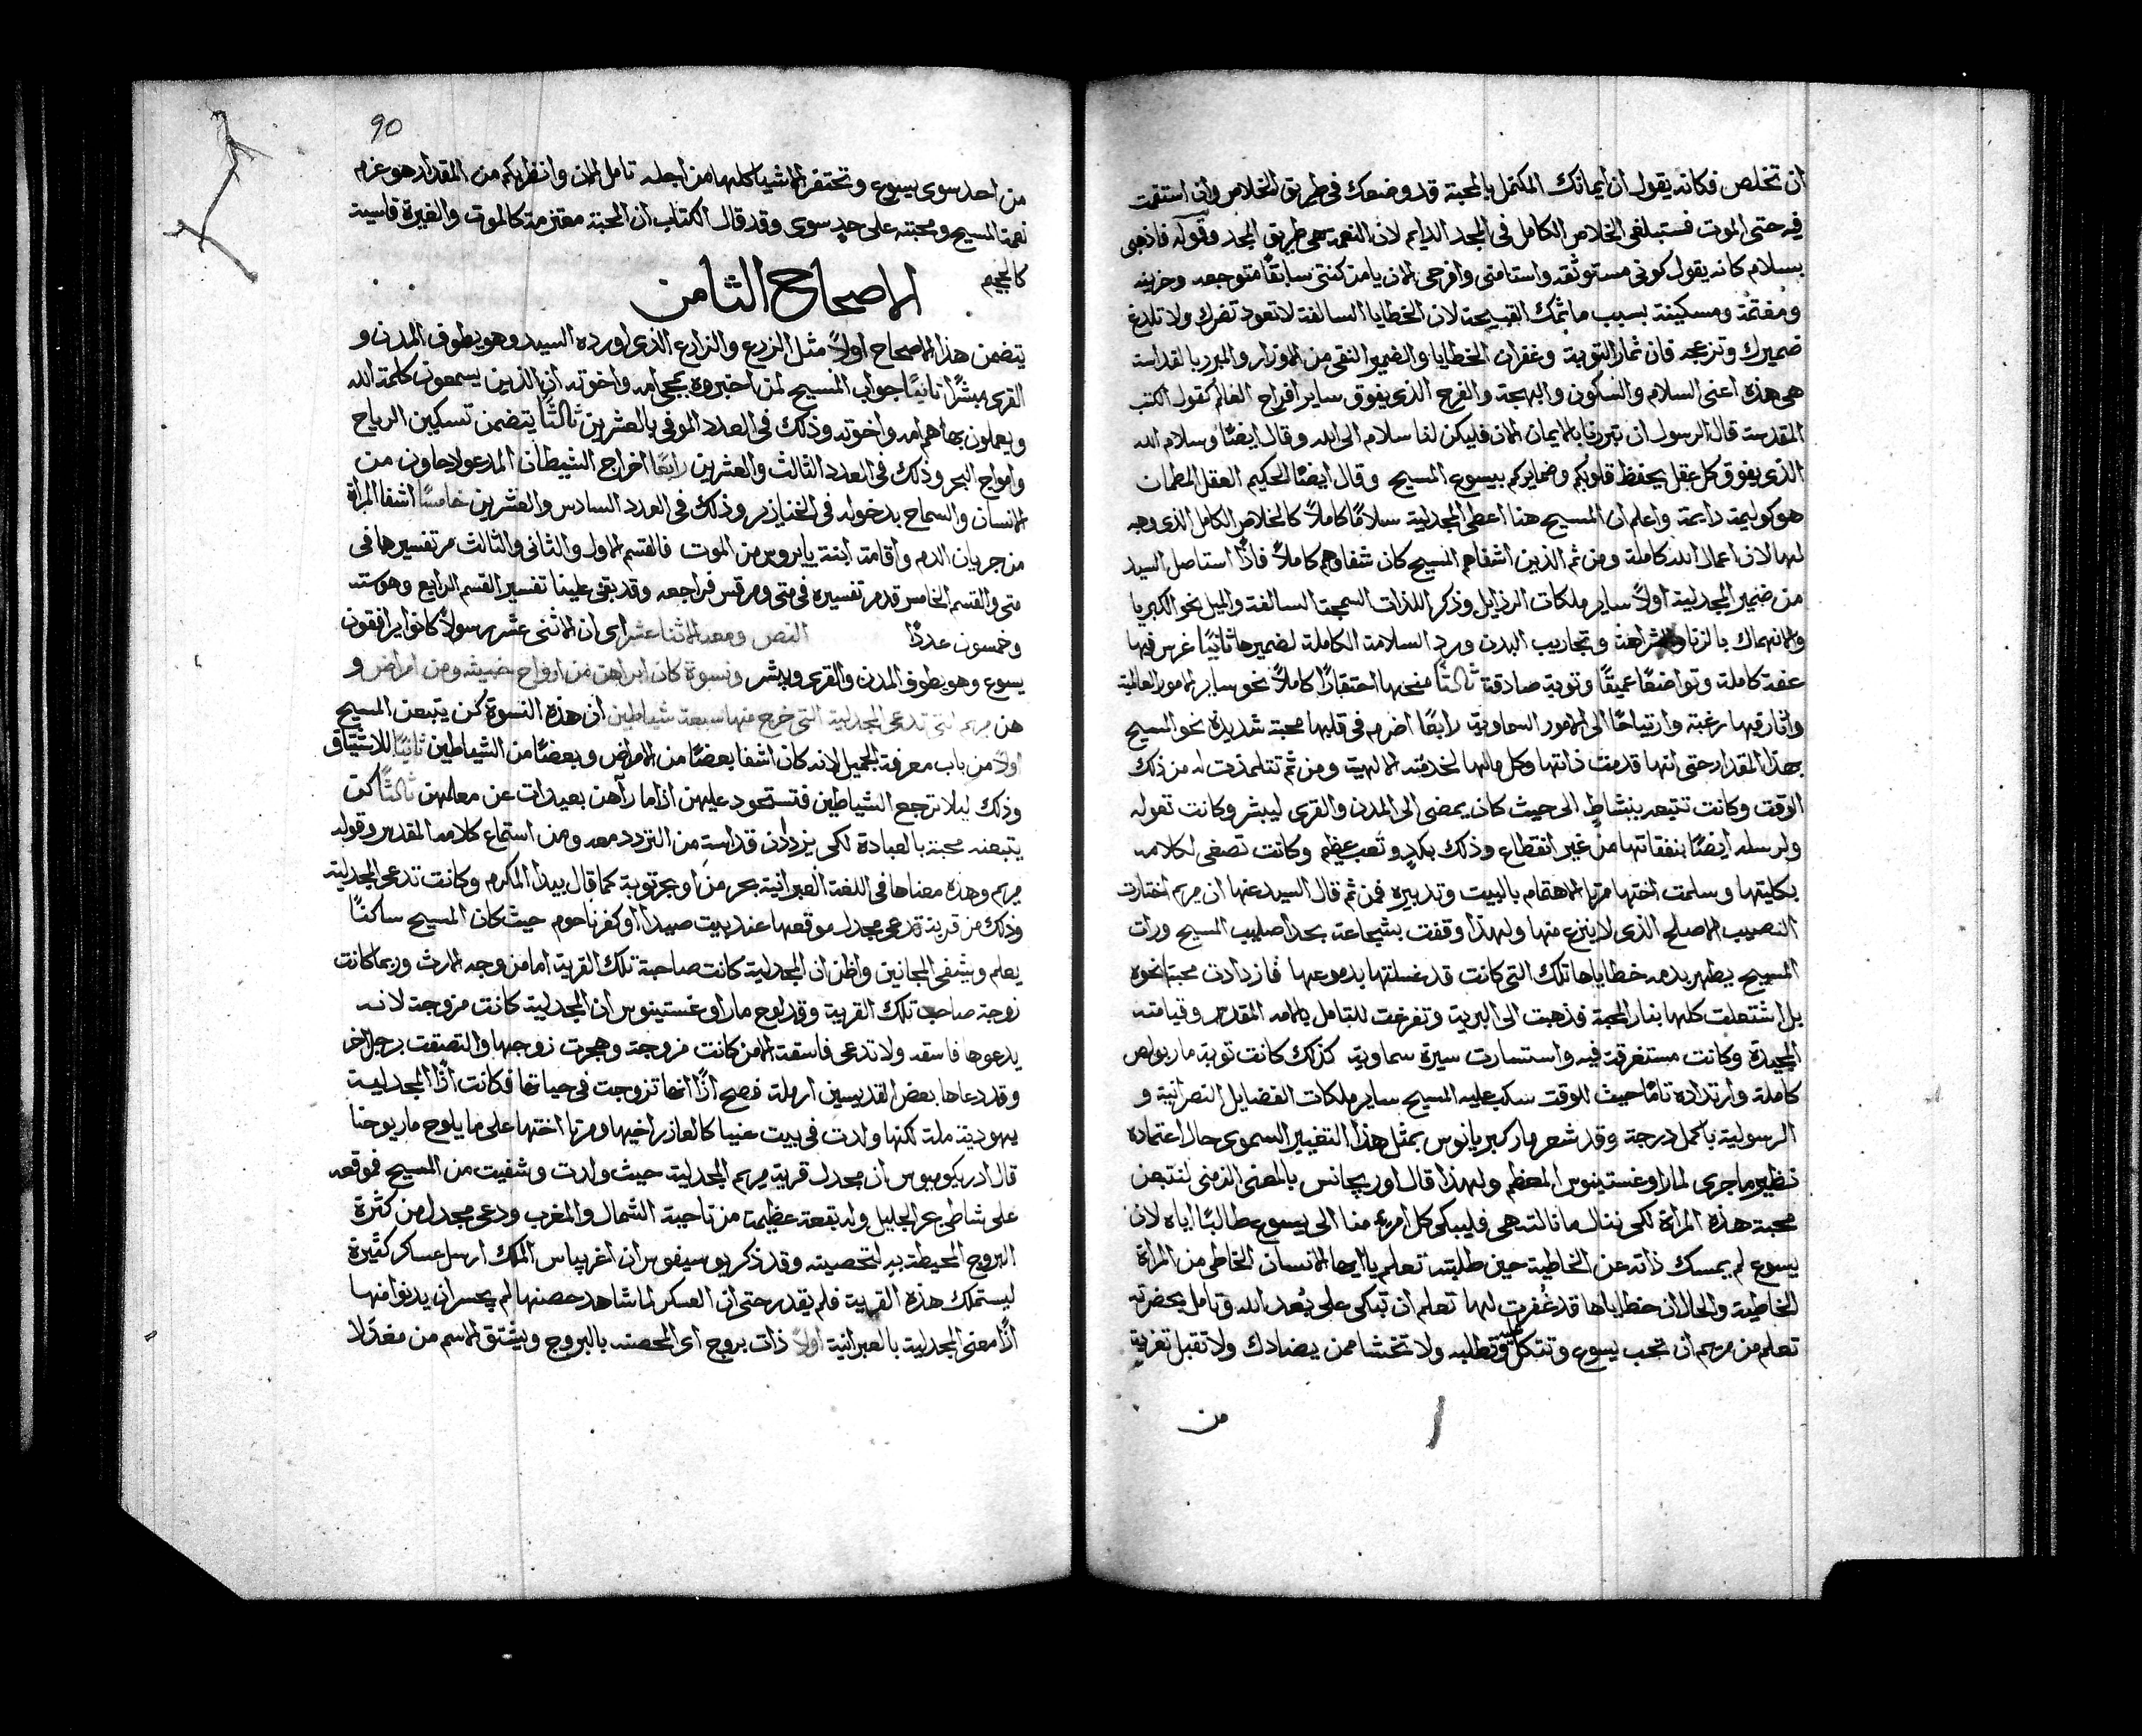 ان تخلص فكانه يقول ان ايمانك المكتمل بالمحبة قد وضعك في طريق الخلاص وان استقمت
فيه حتى الموت فستبلغي الخلاص الكامل في المجد الدايم لان النعمة هي طريق المجد وقوله فاذهبي
بسلام كانه يقول كوني مستوثقه واستامني وافرحي الان يا من كنتي سابقًا متوجعه وحزينه
ومغتمة ومسكينة بسبب ماثمك القبيحة لان الخطايا السالفة لا تعود تضرك ولا تلدغ
ضميرك وتزعجه فان ثمار التوبة وغفران الخطايا والضمير النقي من الاوزار والمبرر بالقداسة
هي هذه اعني السلام والسكون والبهجة والفرح الذي يفوق ساير افراح العالم كقول الكتب
المقدسة قال الرسول ان تبررنا بالايمان الان فليكن لنا سلام الى الله وقال ايضًا وسلام الله
الذي يفوق كل عقل يحفظ قلوبكم وضمايركم بيسوع المسيح وقال ايضًا الحكيم العقل المطمان
هو كوليمة دايمة واعلم ان المسيح هنا اعطى المجدلية سلامًا كاملاً كالخلاص الكامل الذي وجه
لها لان اعمال الله كاملة ومن ثم الذين اشفاهم المسيح كان شفاوهم كاملاً فاذًا استاصل السيد
من ضمير المجدلية اولاً ساير ملكات الرذايل وذكر اللذات السمجة السالفة والميل نحو الكبريا
والانهماك بالزنا والشراهة وتجاريب البدن ورد السلامة الكاملة لضميرها ثانيًا غرس فيها
عفة كاملة وتواضعًا عميقًا وتوبة صادقة ثالثًا منحها احتقارًا كاملاً نحو ساير الامور العالمية
واثار فيها رغبة وارتياحًا الى الامور السماوية رابعًا اضرم في قلبها محبة شديدة نحو المسيح
بهذا المقدار حتى انها قدمت ذاتها وكل مالها لخدمته الالهية ومن ثم تتلمذت له من ذلك
الوقت وكانت تتبعه بنشاط الى حيث كان يمضي الى المدن والقرى ليبشر وكانت تعوله
ولرسله ايضًا بنفقاتها من غير انقطاع وذلك بكدٍ وتعب عظيم وكانت تصغى لكلامه
بكليتها وسلمت اختها مرتا الاهتمام بالبيت وتدبيره فمن ثم قال السيد عنها ان مريم اختارت
النصيب الاصلح الذي لا ينزع منها ولهذا وقفت بشجاعة بحدا صليب المسيح ورات
المسيح يطهر بدمه خطاياها تلك التي كانت قد غسلتها بدموعها فازدادت محبة نحوه
بل اشتعلت كلها بنار المحبة فذهبت الى البرية وتفرغت للتامل بالامه المقدسه وقيامته
المجيدة وكانت مستغرقة فيه واستسارت سيرة سماوية كذلك كانت توبة مار بولص
كاملة وارتداده تامًا حيث للوقت سكب عليه المسيح ساير ملكات الفضايل النصرانية و
الرسولية باكمل درجة وقد شعر مار كبريانوس بمثل هذا التغيير السموي حال اعتماده
نظير ما جرى لمار اوغستينوس المعظم ولهذا قال اوريجانس بالمعنى الزمني لنتبعن
محبة هذه المراة لكي ننال ما نالته هي فليبكي كل امرءٍ منا الى يسوع طالبًا اياه لان
يسوع لم يمسك ذاته عن الخاطية حين طلبته تعلم يا ايها الانسان الخاطي من المراة
الخاطية والحال ان خطاياها قد غُفرت لها تعلم ان تبكي على بُعد الله وتامل بحضرته
تعلم من مريم ان تحب يسوع وتتكل عليه وتطلبه ولا تخشا ممن يضادك ولا تقبل تعزية
من
90
من احد سوى يسوع وتحتقر الاشيا كلها من اجله تامل الان وانظر بكم من المقدار هو عزم
نعمة المسيح ومحبته على حدٍ سوى وقد قال الكتاب ان المحبة معتزمة كالموت والغيرة قاسية
كالجحيم
الاصحاح الثامن
يتضمن هذا الاصحاح اولاً مثل الزرع والزارع الذي اورده السيد وهو يطوف المدن و
القرى مبشرًا ثانيًا جواب المسيح لمن اخبروه بمجي امه واخوته ان الذين يسمعون كلمة الله
ويعملون بها هم امه واخوته وذلك في العدد الموفي بالعشرين ثالثًا يتضمن تسكين الرياح
وامواج البحر وذلك في العدد الثالث والعشرين رابعًا اخراج الشيطان المدعو لاجاون من
الانسان والسماح بدخوله في الخنازير وذلك في العدد السادس والعشرين خامسًا اشفا المراة
من جريان الدم واقامة ابنة يايروس من الموت فالقسم الاول والثاني والثالث مر تفسيرها في
متى والقسم الخامس قد مر تفسيره في متى ومرقس فراجعه وقد بقي علينا تفسير القسم الرابع وهو سته
وخمسون عددًا النص ومعه الاثنا عشر اي ان الاثني عشر رسولاً كانوا يرافقون
يسوع وهو يطوف المدن والقرى ويبشر ونسوة كان ابراهن من ارواح خبيثه ومن امراض و
هن مريم التي تدعى المجدلية التي خرج منها سبعة شياطين ان هذه النسوة كن يتبعن المسيح
اولاً من باب معرفة الجميل لانه كان اشفا بعضًا من الامراض وبعضًا من الشياطين ثانيًا للاشتياق
وذلك ليلا ترجع الشياطين فتستحود عليهن اذا ما رآهن بعيدات عن معلمهن ثالثًا كن
يتبعنه محبة بالعبادة لكي يزددن قداسةً من التردد معه ومن استماع كلامه المقدس وقوله
مريم وهذه معناها في اللغة العبرانية بحر من او بحر توبة كما قال بيدا المكرم وكانت تدعى المجدلية
وذلك من قرية تدعى مجدل موقعها عند بيت صيدا او كفرناحوم حيث كان المسيح ساكنًا
يعلم ويشفي المجانين واظن ان المجدلية كانت صاحبة تلك القرية اما من وجه الارث وربما كانت
زوجة صاحب تلك القرية وقد يلوح مار اوغستينوس ان المجدلية كانت مزوجة لانه
يدعوها فاسقه ولا تدعى فاسقة الا من كانت مزوجة وهجرت زوجها والتصقت برجل اخر
وقد دعاها بعض القديسين ارملة فصح اذًا انها تزوجت في حياتها فكانت اذًا المجدلية
يهودية ملة لكنها ولدت في بيت عنيا كالعازر اخيها ومرتا اختها على ما يلوح مار يوحنا
قال ادريكوميوس ان مجدل قرية مريم المجدلية حيث ولدت وشفيت من المسيح فموقعه
على شاطي بحر الجليل وله بقعة عظيمة من ناحية الشمال والمغرب ودعي مجدل من كثرة
البروج المحيطة به لتحصينه وقد ذكر يوسيفوس ان اغريباس الملك ارسل عساكر كثيرة
ليستملك هذه القرية فلم يقدر حتى ان العسكر لما شاهد حصنها لم يجسر ان يدنوا منها
اذًا معنى المجدلية بالعبرانية اولاً ذات بروج اي المحصنه بالبروج ويشتق الاسم من مغدلا